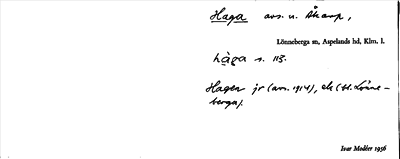 Haga avs. u. Åkarp,
Lönneberga sn, Aspelands hd, Klm. l.
hàga s. 113.
Hagen jr (avs. 1914), ek (bl. Lönne-
berga).
Ivar Modéer 1936